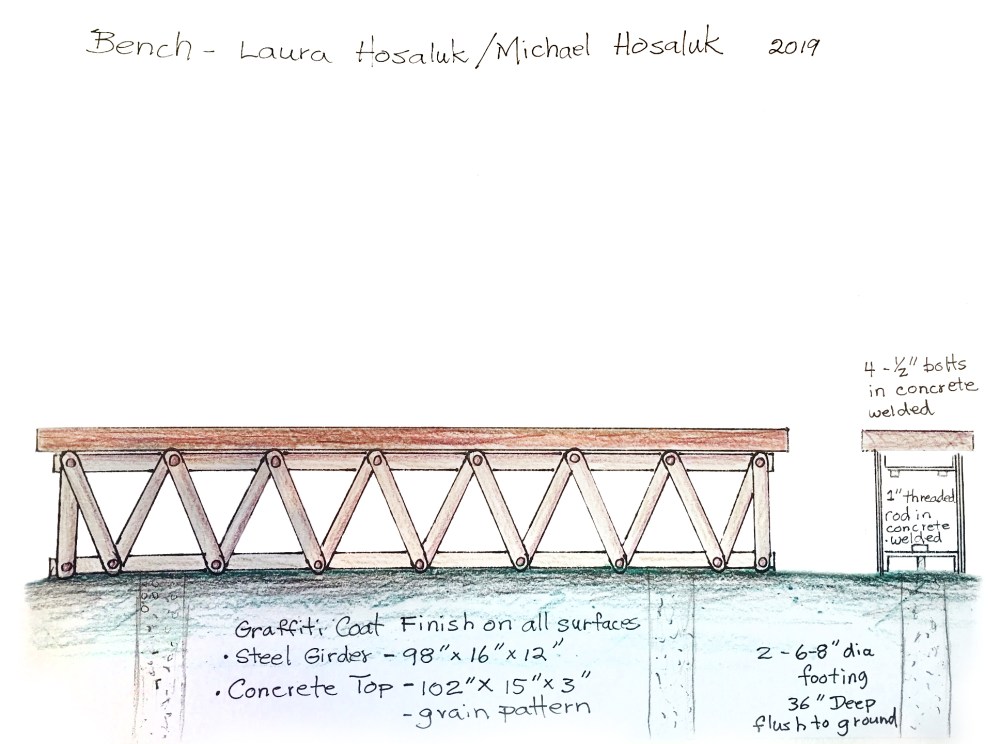 Bench - Laura Hosaluk/Michael Hosaluk 2019
4 - ½" bolts
in concrete
welded
1" threaded
rod in
concrete
• welded
Graffiti Coat Finish on all surfaces
• Steel Girder - 98" x 16" x 12"
• Concrete Top - 102" x 15" x 3"
- grain pattern
2 - 6-8" dia
footing
36" Deep
flush to ground